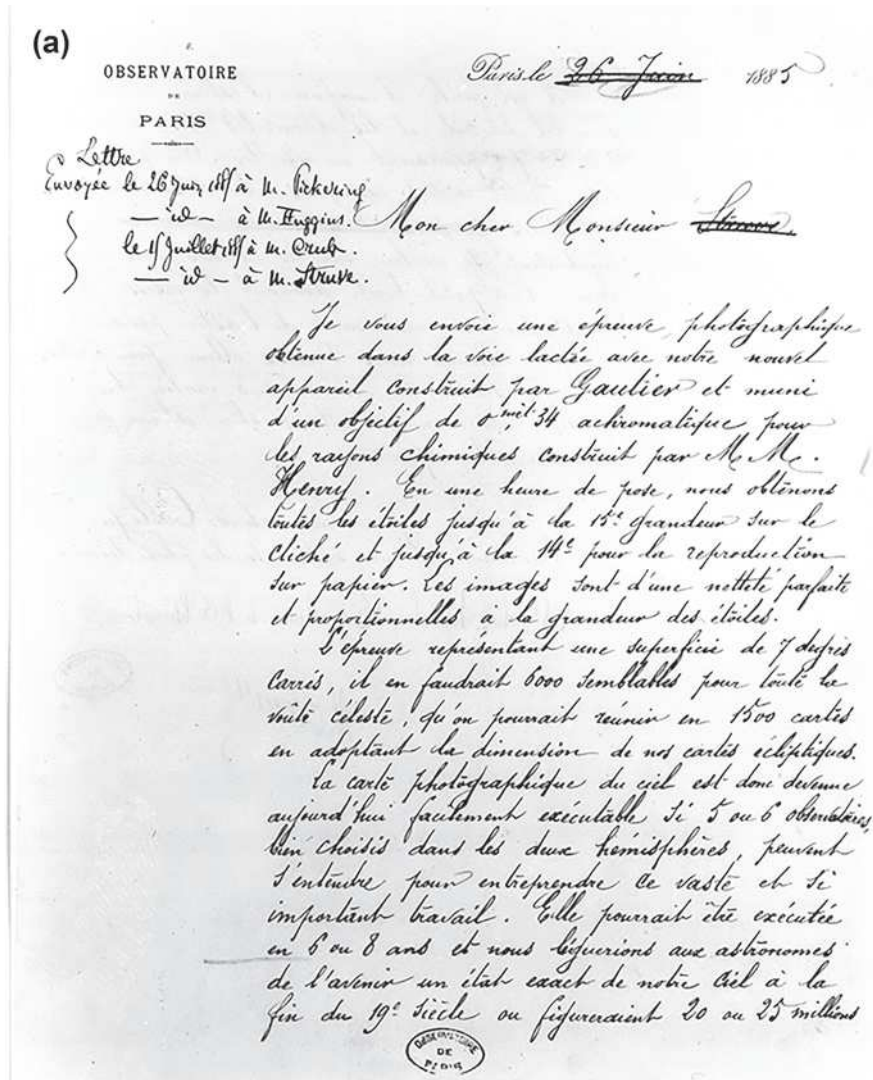 (a)
OBSERVATOIRE
DE
PARIS
Paris, le 26 Juin 1885
Lettre
Envoyée le 26 Juin 1885 à M. Pickering
— id — à M. Huggins.
le 15 Juillet 1885 à M. Crub.
— id — à M. Struve.
Mon cher Monsieur Struve.
Je vous envoie une épreuve photographique
obtenue dans la voie lactée avec notre nouvel
appareil construit par Gautier et muni
d'un objectif de 0mèt,34 achromatique pour
les rayons chimiques construit par M.M.
Henry. En une heure de pose, nous obtenons
toutes les étoiles jusqu'à la 15e grandeur sur le
cliché et jusqu'à la 14e pour la reproduction
sur papier. Les images sont d'une netteté parfaite
et proportionnelles à la grandeur des étoiles.
L'épreuve représentant une superficie de 7 degrés
carrés, il en faudrait 6000 semblables pour toute la
voûte céleste, qu'on pourrait réunir en 1500 cartes
en adoptant la dimension de nos cartes écliptiques.
La carte photographique du ciel est donc devenue
aujourd'hui facilement exécutable si 5 ou 6 observatoires,
bien choisis dans les deux hémisphères, peuvent
s'entendre pour entreprendre ce vaste et si
important travail. Elle pourrait être exécutée
en 6 ou 8 ans et nous léguerions aux astronomes
de l'avenir un état exact de notre Ciel à la
fin du 19e siècle ou figureraient 20 ou 25 millions
OBSERVATOIRE
DE
PARIS